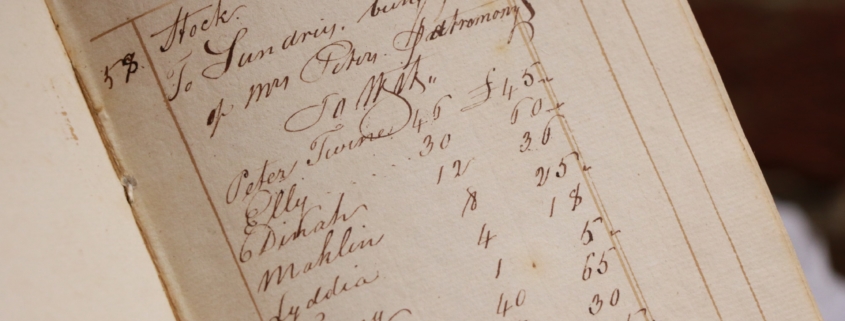 Stock.
58. To Sundries. being
of Mrs Peters Patromony
To Wit..
Peter Twine 46 £45-
Elly 30 60-
Dinah 12 36
Mahlin 8 25-
Lyddia 4 18
1 5-
40 65
30